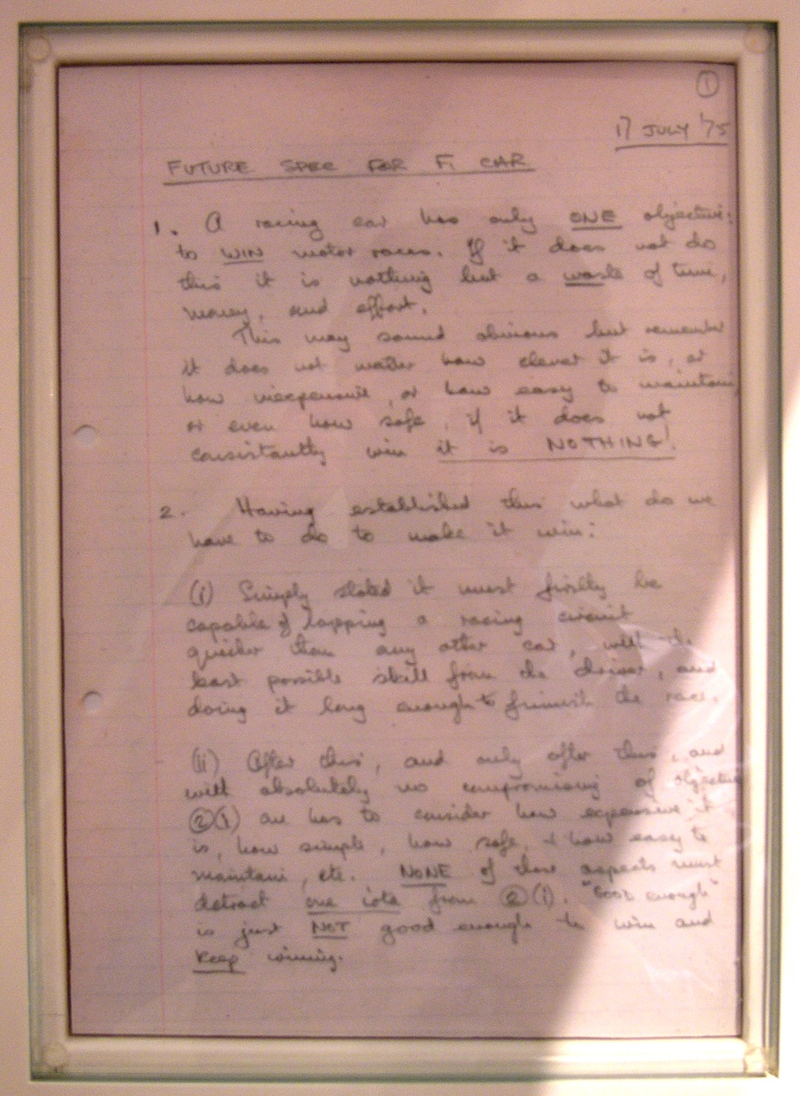 1
17 JULY '75
FUTURE SPEC FOR F1 CAR
1. A racing car has only ONE objective:
to WIN motor races. If it does not do
this it is nothing but a waste of time,
money, and effort.
This may sound obvious but remember
it does not matter how clever it is, or
how inexpensive, or how easy to maintain
or even how safe, if it does not
consistantly win it is NOTHING!
2. Having established this what do we
have to do to make it win:
(i) Simply stated it must firstly be
capable of lapping a racing circuit
quicker than any other car, with the
least possible skill from the driver, and
doing it long enough to finish the race.
(ii) After this, and only after this, and
with absolutely no compromising of objective
2(i) one has to consider how expensive it
is, how simple, how safe, & how easy to
maintain, etc. NONE of these aspects must
detract one iota from 2(i). "Good enough"
is just NOT good enough to win and
keep winning.